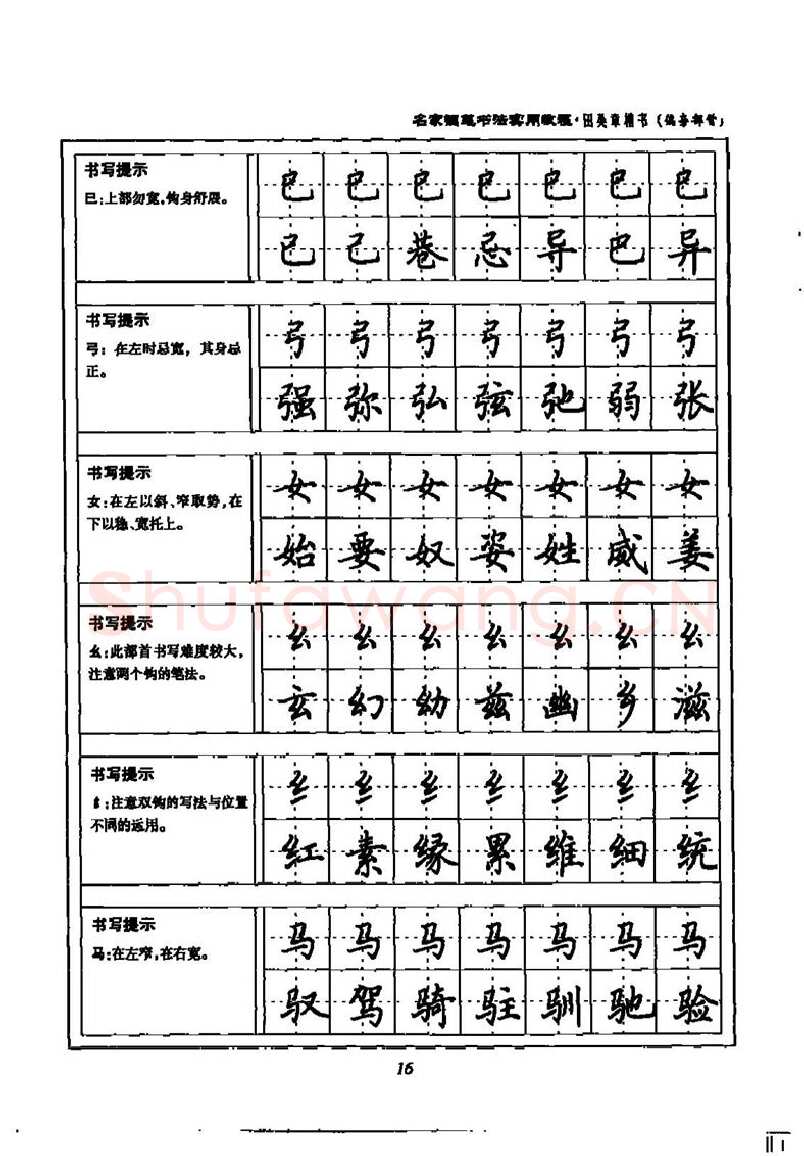 名家钢笔书法实用教程·田英章楷书(偏旁部首)
书写提示
巳:上部勿宽,钩身舒展。
巳 巳 巳 巳 巳 巳 巳
已 己 巷 忌 导 巴 异
书写提示
弓:在左时忌宽,其身忌
正。
弓 弓 弓 弓 弓 弓 弓
强 弥 弘 弦 弛 弱 张
书写提示
女:在左以斜、窄取势,在
下以稳、宽托上。
女 女 女 女 女 女 女
始 要 奴 姿 姓 威 姜
书写提示
幺:此部首书写难度较大,
注意两个钩的笔法。
幺 幺 幺 幺 幺 幺 幺
玄 幻 幼 兹 幽 乡 滋
书写提示
纟:注意双钩的写法与位置
不同的运用。
纟 纟 纟 纟 纟 纟 纟
红 素 缘 累 维 细 统
书写提示
马:在左窄,在右宽。
马 马 马 马 马 马 马
驭 驾 骑 驻 驯 驰 验
16
shufawang.CN